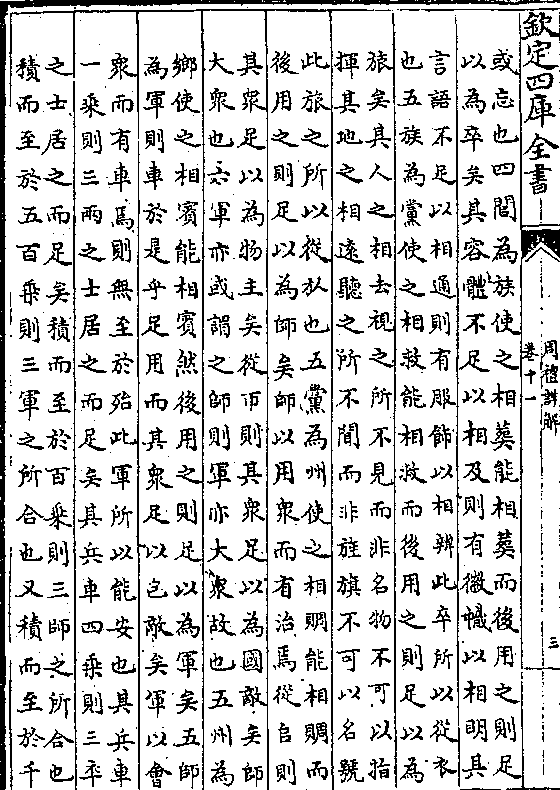 欽定四庫全書
周禮詳解
卷十一
三
或忘也四閭為族使之相葬能相葬而後用之則足
以為卒矣其容體不足以相及則有徽幟以相明其
言語不足以相通則有服飾以相辨此卒所以從衣
也五族為黨使之相救能相救而後用之則足以為
旅矣其人之相去視之所不見而非名物不可以指
揮其地之相逺聽之所不聞而非旌旗不可以名號
此旅之所以從㫃也五黨為州使之相賙能相賙而
後用之則足以為師矣師以用衆而有治焉從𠂤則
其衆足以為物主矣從帀則其衆足以為國敵矣師
大衆也六軍亦或謂之師則軍亦大衆故也五州為
鄉使之相賓能相賓然後用之則足以為軍矣五師
為軍則車於是乎足用而其衆足以包敵矣軍以會
衆而有車焉則無至於殆此軍所以能安也具兵車
一乗則三兩之士居之而足矣其兵車四乗則三卒
之士居之而足矣積而至於百乗則三師之所合也
積而至於五百乗則三軍之所合也又積而至於千